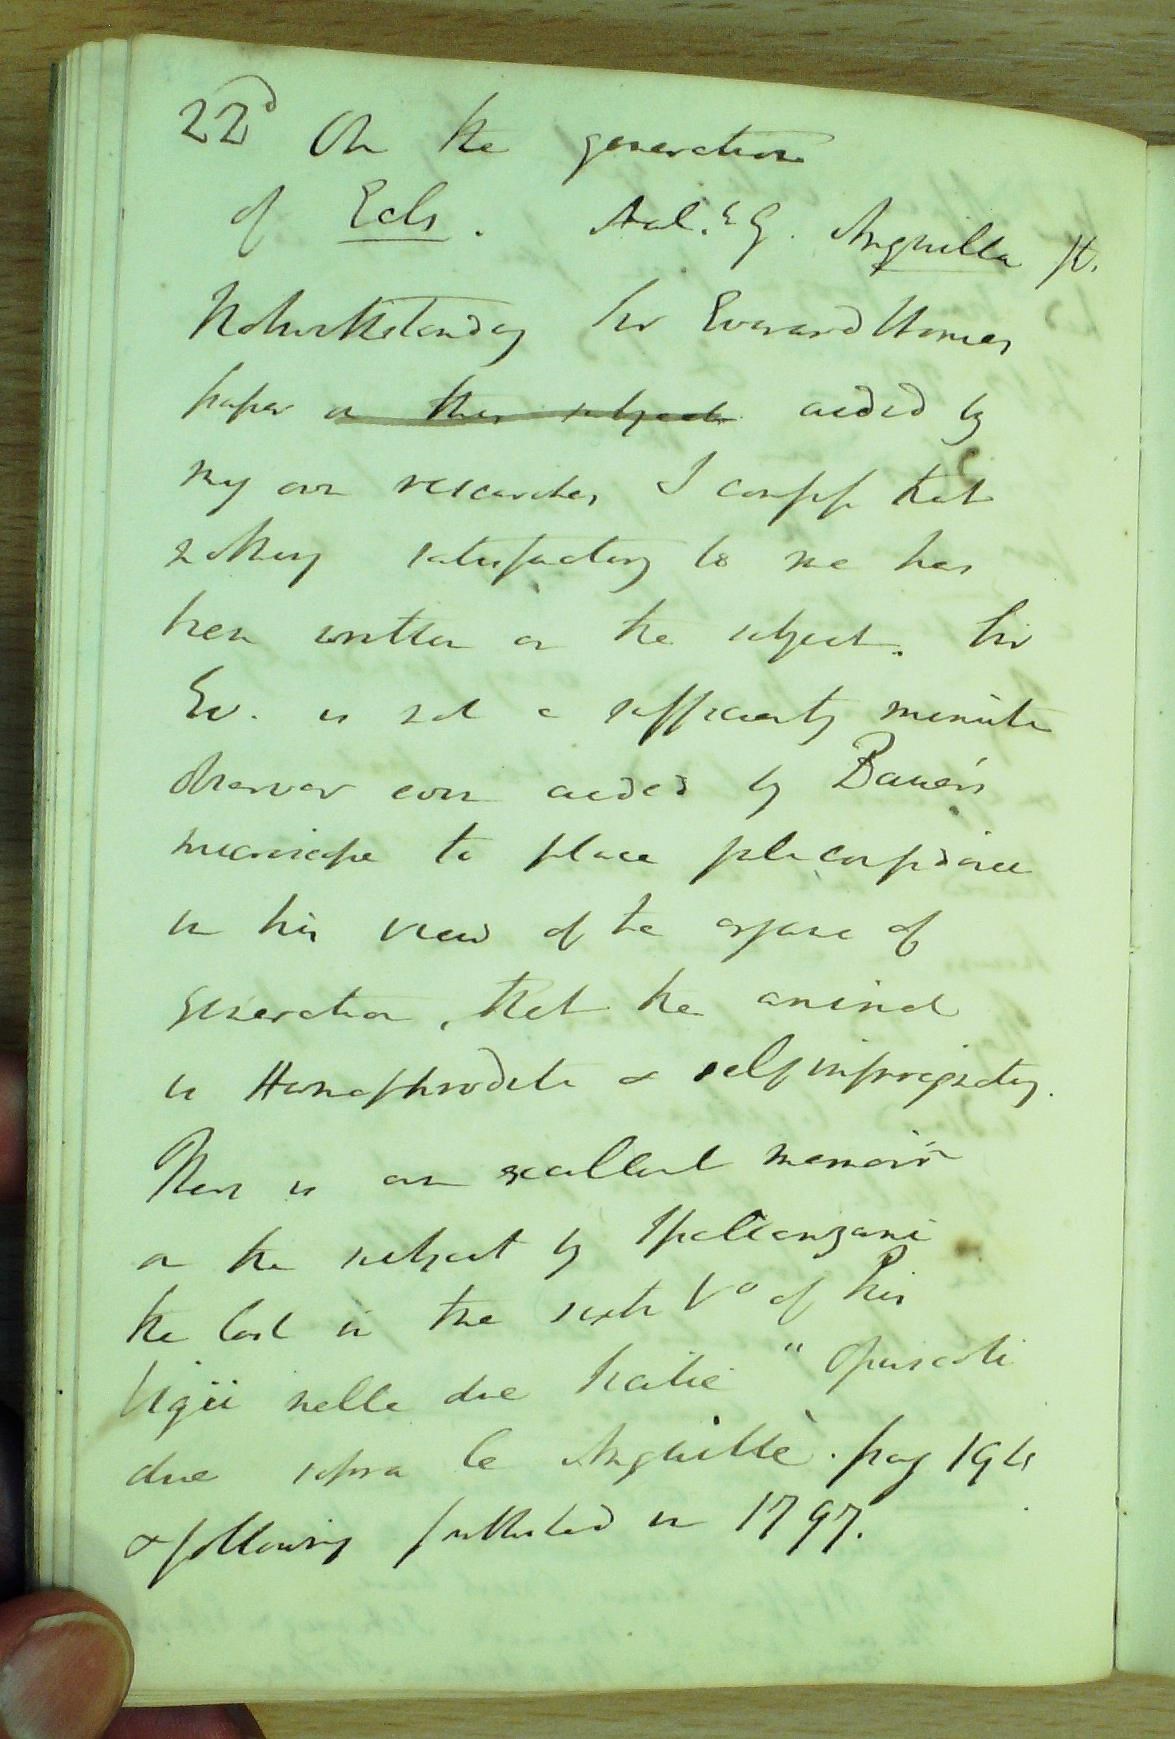 22d On the generation
of Eels. Anguilla
Notwithstanding Sir Everard Homes
paper on this subject aided by
my own researches I confess that
nothing satisfactory to me has
been written on the subject. Sir
Ev. is not a sufficiently minute
observer even aided by Bauer's
microscope to place full confidence
in his view of the organs of
generation, that the animal
is Hermaphrodite & self impregnating.
There is an excellent memoir
on the subject by Spallanzani
the last in the sixth Vo of his
Viggi nelle due Sicilie "Opuscoli
due sopra le Anguille. pag
& following published in 1797.